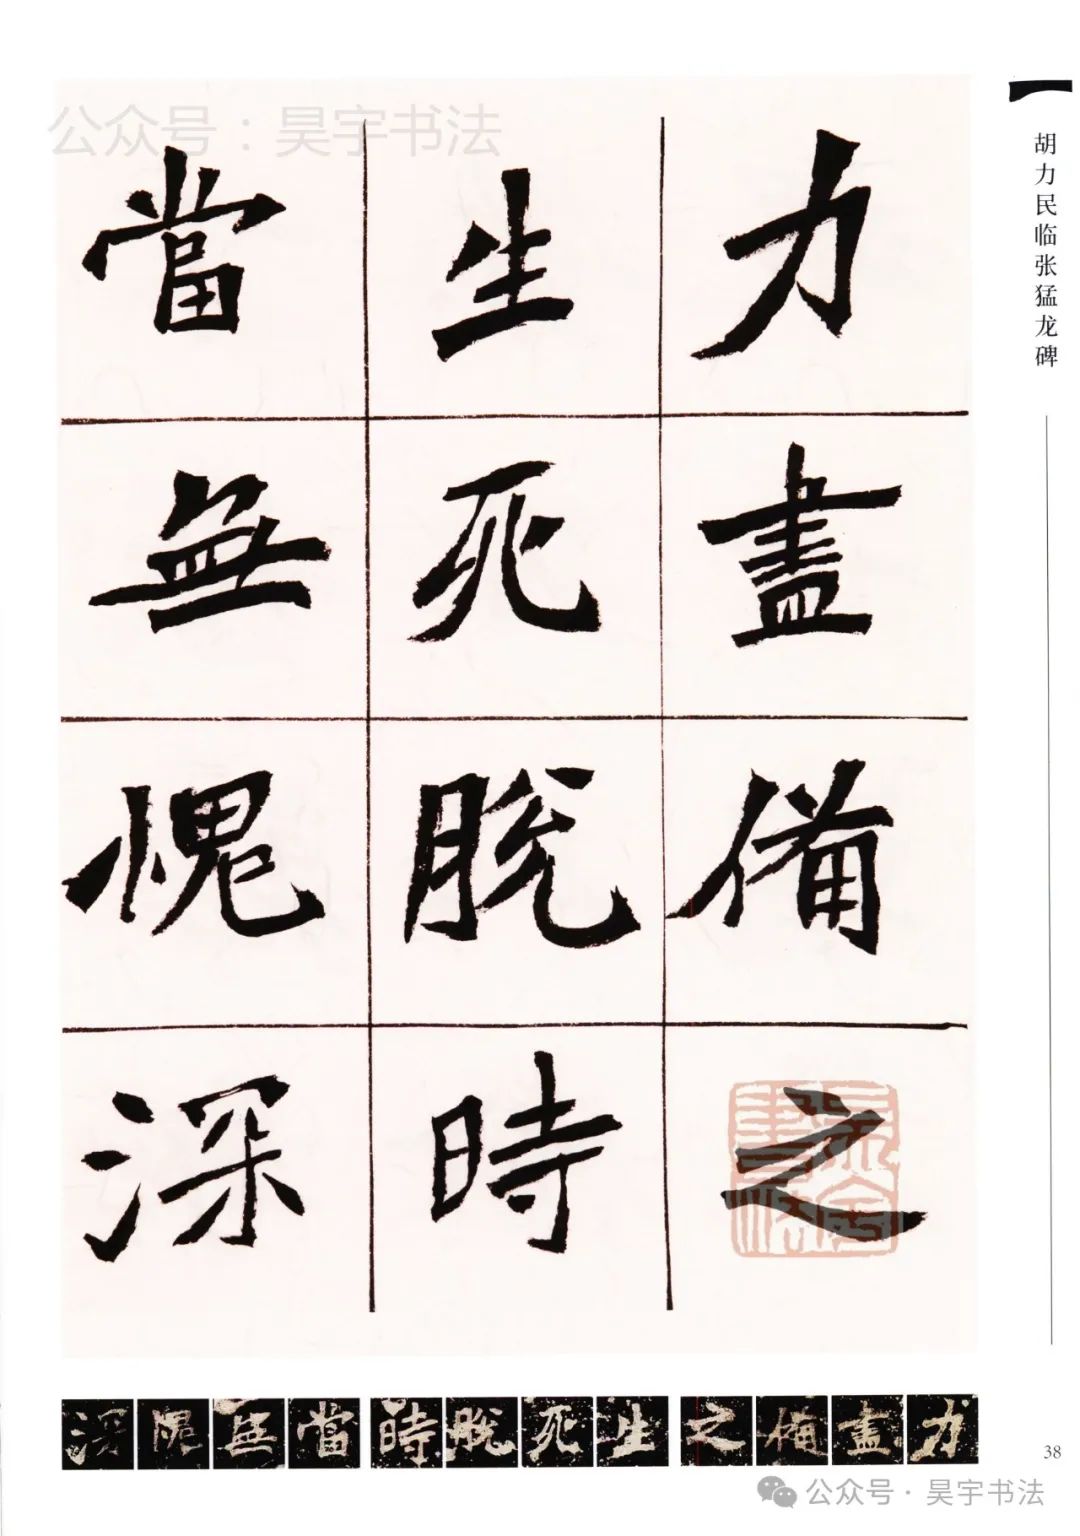 公众号：昊宇书法
胡力民临张猛龙碑
力盡備之
生死脫時
當無愧深
深愧無當時脫死生之備盡力
38
公众号·昊宇书法